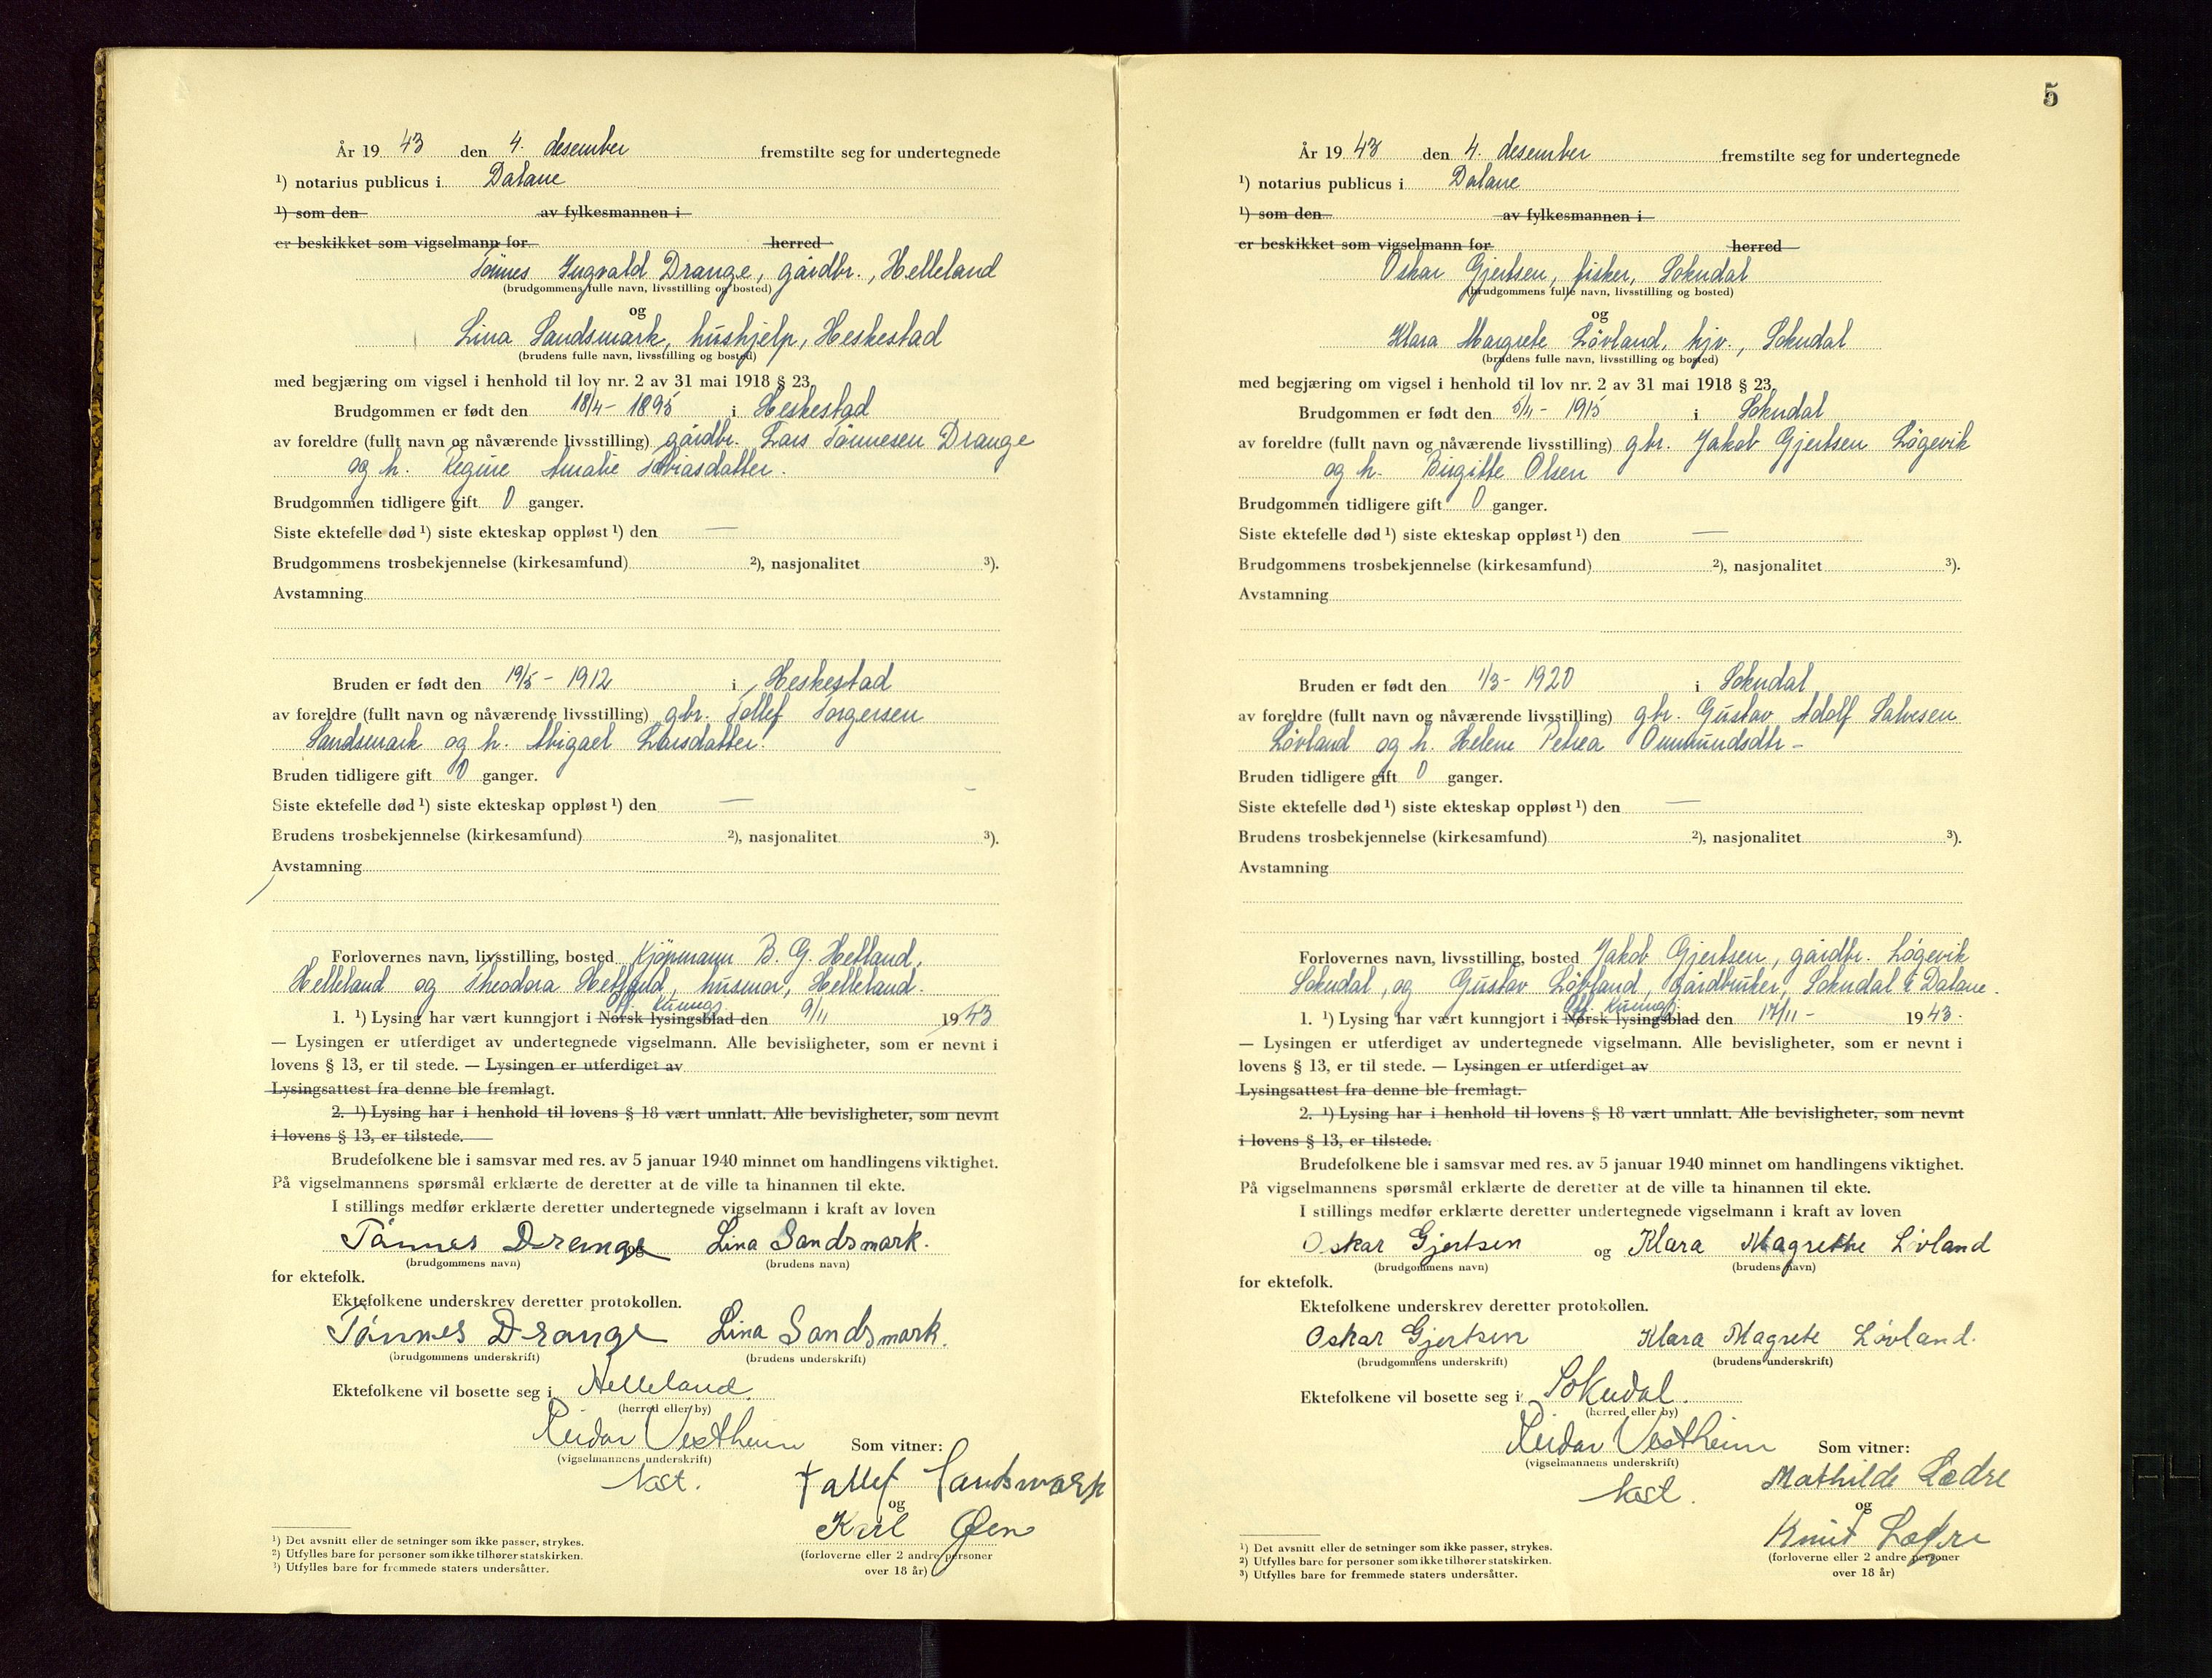 År 19 43 den 4. desember fremstilte seg for undertegnede
¹) notarius publicus i Dalane
¹) som den av fylkesmannen i
er beskikket som vigselmann for herred
Tønnes Ingvald Drange, gårdbr., Helleland
(brudgommens fulle navn, livsstilling og bosted)
og
Lina Sandsmark, hushjelp, Heskestad
(brudens fulle navn, livsstilling og bosted)
med begjæring om vigsel i henhold til lov nr. 2 av 31 mai 1918 § 23.
Brudgommen er født den 18/4 - 1895 i Heskestad
av foreldre (fullt navn og nåværende livsstilling) gårdbr. Lars Tønnesen Drange
og h. Regine Amalie Tobiasdatter.
Brudgommen tidligere gift 0 ganger.
Siste ektefelle død ¹) siste ekteskap oppløst ¹) den —
Brudgommens trosbekjennelse (kirkesamfund) ²), nasjonalitet ³).
Avstamning
Bruden er født den 19/5 - 1912 i Heskestad
av foreldre (fullt navn og nåværende livsstilling) gbr. Tollef Torgersen
Sandsmark og h. Abigael Larsdatter.
Bruden tidligere gift 0 ganger.
Siste ektefelle død ¹) siste ekteskap oppløst ¹) den —
Brudens trosbekjennelse (kirkesamfund) ²), nasjonalitet ³).
Avstamning
Forlovernes navn, livsstilling, bosted Kjøpmann B. G. Hetland,
Helleland og Theodora Hetland, husmor, Helleland.
Off. Kunngj.
1. ¹) Lysing har vært kunngjort i Norsk lysingsblad den 9/11 1943
— Lysingen er utferdiget av undertegnede vigselmann. Alle bevisligheter, som er nevnt i
lovens § 13, er til stede. — Lysingen er utferdiget av
Lysingsattest fra denne ble fremlagt.
2. ¹) Lysing har i henhold til lovens § 18 vært unnlatt. Alle bevisligheter, som nevnt
i lovens § 13, er tilstede.
Brudefolkene ble i samsvar med res. av 5 januar 1940 minnet om handlingens viktighet.
På vigselmannens spørsmål erklærte de deretter at de ville ta hinannen til ekte.
I stillings medfør erklærte deretter undertegnede vigselmann i kraft av loven
Tønnes Drange og Lina Sandsmark.
(brudgommens navn) (brudens navn)
for ektefolk.
Ektefolkene underskrev deretter protokollen.
Tønnes Drange Lina Sandsmark.
(brudgommens underskrift) (brudens underskrift)
Ektefolkene vil bosette seg i Helleland.
(herred eller by)
Reidar Vestheim Som vitner:
(vigselmannens underskrift)
kst. Tallef Sandsmark
og
Karl Øen
(forloverne eller 2 andre personer
over 18 år)
¹) Det avsnitt eller de setninger som ikke passer, strykes.
²) Utfylles bare for personer som ikke tilhører statskirken.
³) Utfylles bare for fremmede staters undersåtter.
5
År 19 43 den 4. desember fremstilte seg for undertegnede
¹) notarius publicus i Dalane
¹) som den av fylkesmannen i
er beskikket som vigselmann for herred
Oskar Gjertsen, fisker, Sokndal
(brudgommens fulle navn, livsstilling og bosted)
og
Klara Margrete Løvland, hjv., Sokndal
(brudens fulle navn, livsstilling og bosted)
med begjæring om vigsel i henhold til lov nr. 2 av 31 mai 1918 § 23.
Brudgommen er født den 5/11 - 1915 i Sokndal
av foreldre (fullt navn og nåværende livsstilling) gbr. Jakob Gjertsen Løgevik
og h. Birgitte Olsen
Brudgommen tidligere gift 0 ganger.
Siste ektefelle død ¹) siste ekteskap oppløst ¹) den —
Brudgommens trosbekjennelse (kirkesamfund) ²), nasjonalitet ³).
Avstamning
Bruden er født den 1/3 - 1920 i Sokndal
av foreldre (fullt navn og nåværende livsstilling) gbr. Gustav Adolf Salvesen
Løvland og h. Helene Petrea Ommundsdtr -
Bruden tidligere gift 0 ganger.
Siste ektefelle død ¹) siste ekteskap oppløst ¹) den —
Brudens trosbekjennelse (kirkesamfund) ²), nasjonalitet ³).
Avstamning
Forlovernes navn, livsstilling, bosted Jakob Gjertsen, gårdbr. Løgevik
Sokndal, og Gustav Løvland, gårdbruker, Sokndal i Dalane.
Off. Kunngj.
1. ¹) Lysing har vært kunngjort i Norsk lysingsblad den 17/11 - 1943.
— Lysingen er utferdiget av undertegnede vigselmann. Alle bevisligheter, som er nevnt i
lovens § 13, er til stede. — Lysingen er utferdiget av
Lysingsattest fra denne ble fremlagt.
2. ¹) Lysing har i henhold til lovens § 18 vært unnlatt. Alle bevisligheter, som nevnt
i lovens § 13, er tilstede.
Brudefolkene ble i samsvar med res. av 5 januar 1940 minnet om handlingens viktighet.
På vigselmannens spørsmål erklærte de deretter at de ville ta hinannen til ekte.
I stillings medfør erklærte deretter undertegnede vigselmann i kraft av loven
Oskar Gjertsen og Klara Magrethe Løvland
(brudgommens navn) (brudens navn)
for ektefolk.
Ektefolkene underskrev deretter protokollen.
Oskar Gjertsen Klara Magrete Løvland.
(brudgommens underskrift) (brudens underskrift)
Ektefolkene vil bosette seg i Sokndal.
(herred eller by)
Reidar Vestheim Som vitner:
(vigselmannens underskrift)
kst. Mathilde Lædre
og
Knut Lædre
(forloverne eller 2 andre personer
over 18 år)
¹) Det avsnitt eller de setninger som ikke passer, strykes.
²) Utfylles bare for personer som ikke tilhører statskirken.
³) Utfylles bare for fremmede staters undersåtter.